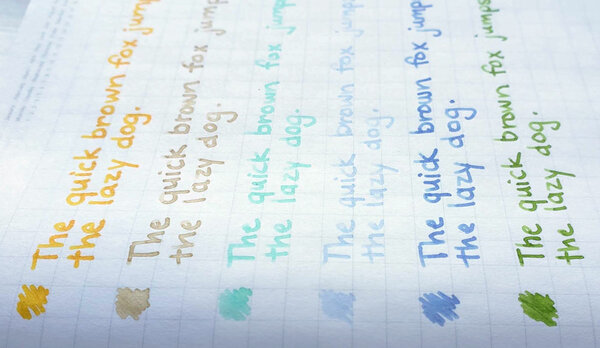 The quick brown fox jump
the lazy dog.
The quick brown fox jump
the lazy dog.
The quick brown fox jump
the lazy dog.
The quick brown fox jumps
the lazy dog.
The quick brown fox jump
the lazy dog.
The quick brown fox jumps
the lazy dog.